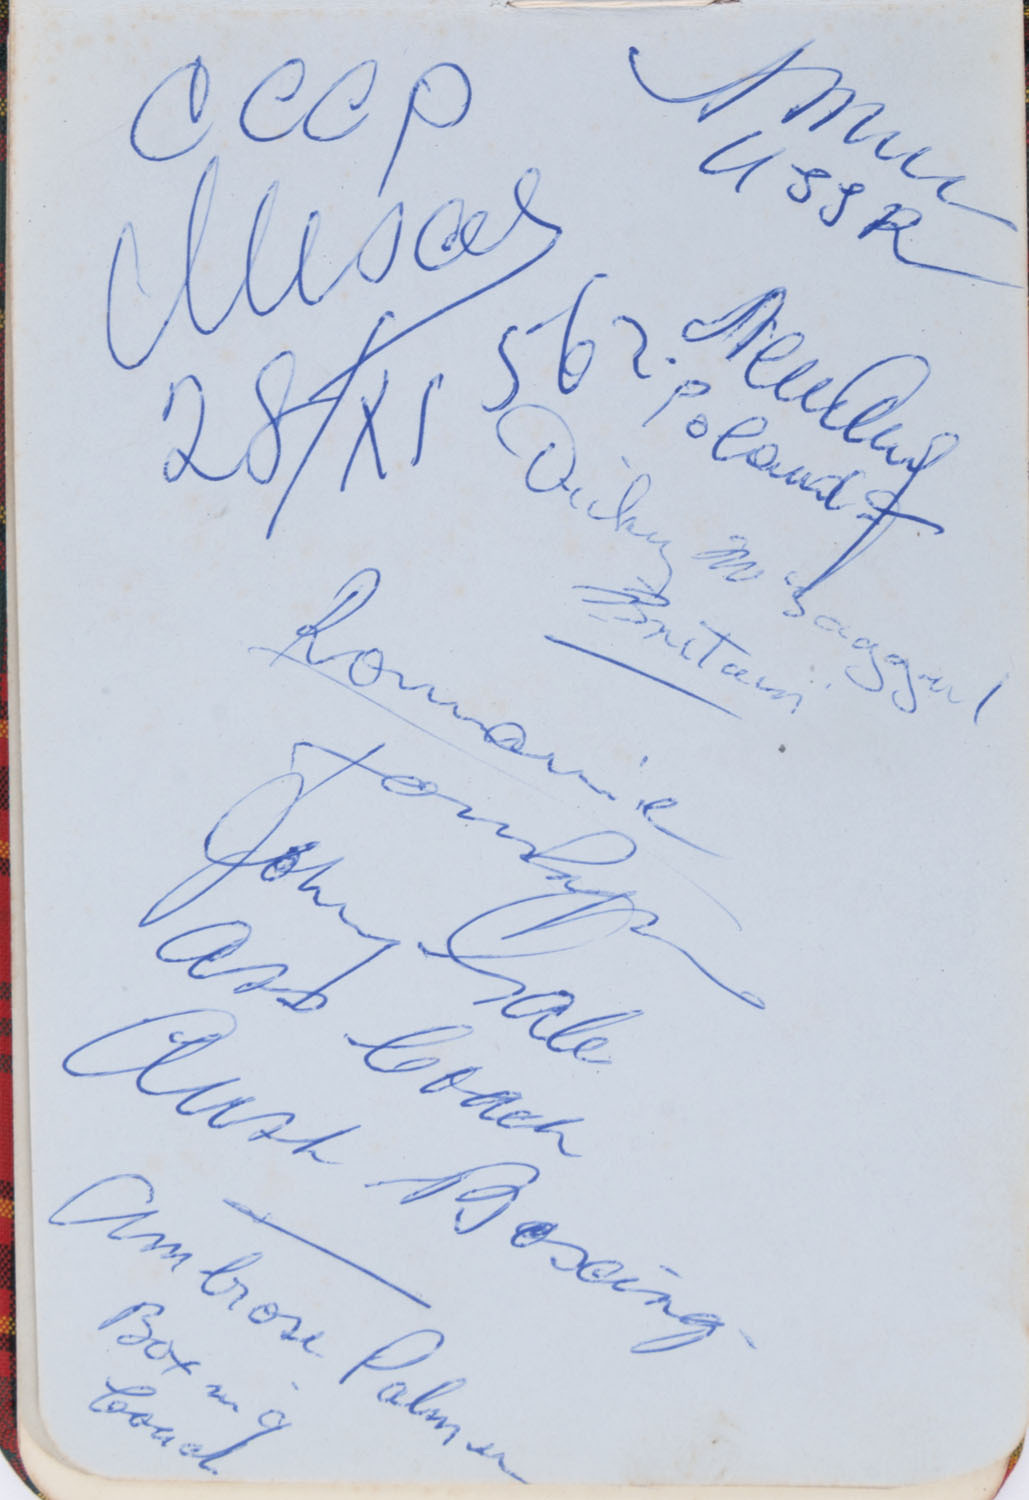 СССР
28/XI 56 г.
USSR
Poland
Dicky McTaggart
Britain
Roumanie
Johnny Gale
Ass Coach
Aust Boxing
Ambrose Palmer
Boxing
Coach